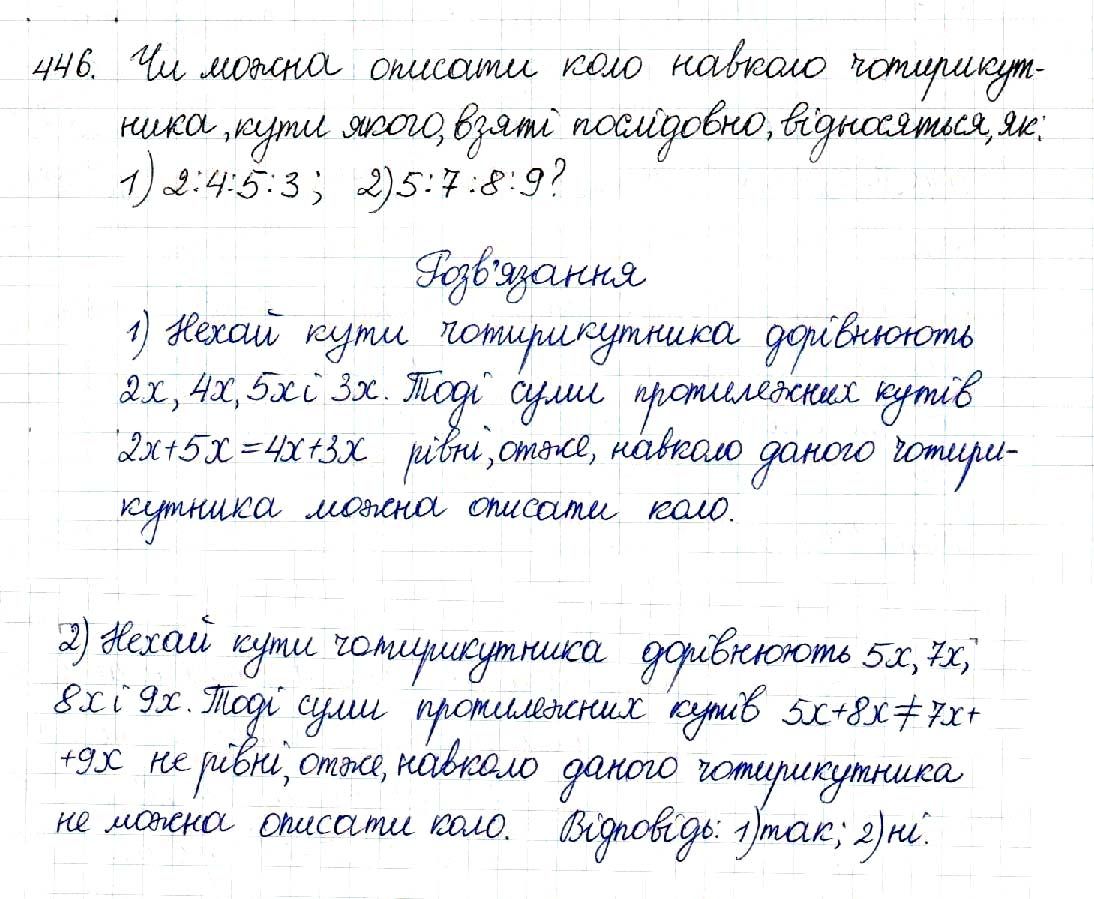 446. Чи можна описати коло навколо чотирикут-
ника, кути якого, взяті послідовно, відносяться, як:
1) 2:4:5:3; 2) 5:7:8:9?
Розв'язання
1) Нехай кути чотирикутника дорівнюють
2x, 4x, 5x і 3x. Тоді суми протилежних кутів
2x+5x=4x+3x рівні, отже, навколо даного чотири-
кутника можна описати коло.
2) Нехай кути чотирикутника дорівнюють 5x, 7x,
8x і 9x. Тоді суми протилежних кутів 5x+8x≠7x+
+9x не рівні, отже, навколо даного чотирикутника
не можна описати коло. Відповідь: 1) так; 2) ні.